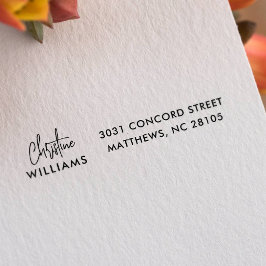 Christine
WILLIAMS
3031 CONCORD STREET
MATTHEWS, NC 28105